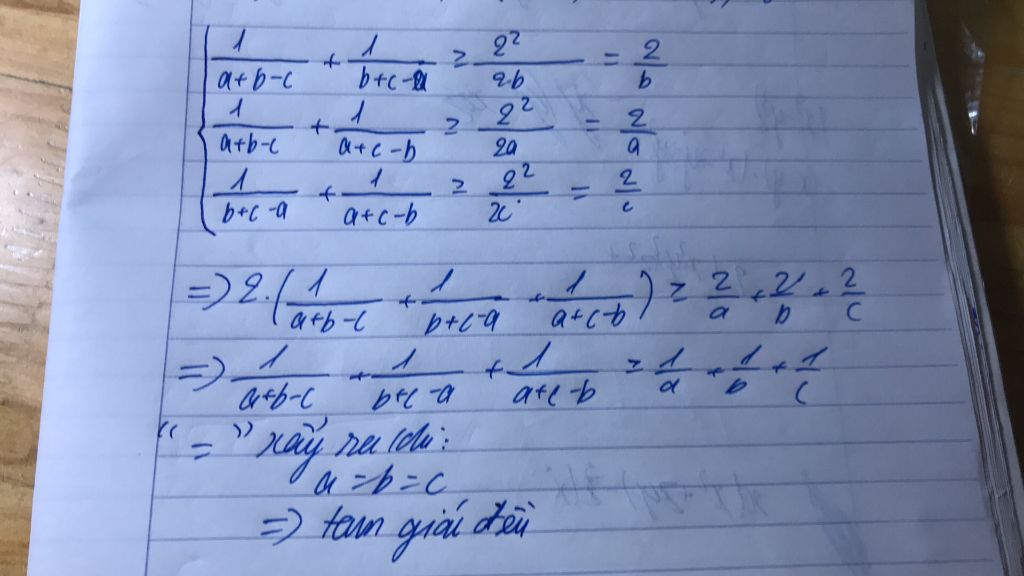 1/(a+b-c) + 1/(b+c-a) ≥ 2²/2b = 2/b
1/(a+b-c) + 1/(a+c-b) ≥ 2²/2a = 2/a
1/(b+c-a) + 1/(a+c-b) ≥ 2²/2c = 2/c
=> 2.(1/(a+b-c) + 1/(b+c-a) + 1/(a+c-b)) ≥ 2/a + 2/b + 2/c
=> 1/(a+b-c) + 1/(b+c-a) + 1/(a+c-b) ≥ 1/a + 1/b + 1/c
"=" xảy ra khi:
a=b=c
=> tam giác đều